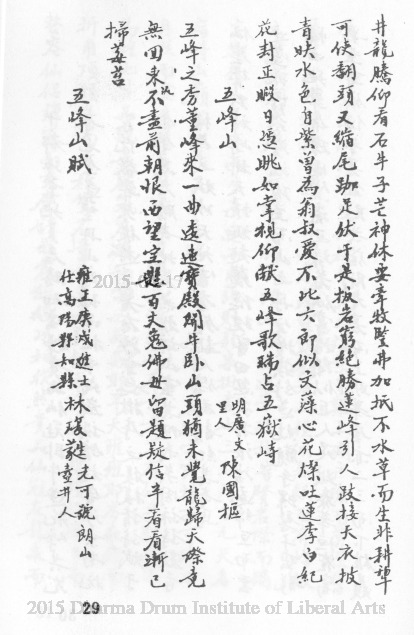 井龍騰仰看石牛子芒神休妄牽牧豎弗加抵不水草而生非耕犂
可使翻頭又縮尾跏足伏于是扳岩窮絕勝蓮峰引人跂接天衣披
青映水色自紫曾為翁叔愛不比六郎似文藻心花燦吐蓮李白紀
花封正暇日憑眺如掌視仰獻五峰歌瑞占五嶽峙
五峰山
明廣文里人陳國樞
五峰之秀董峰來一曲逶迤寶殿開牛臥山頭猶未覺龍歸天際竟
無回東流不盡前朝恨西望空懸百丈兔佛母留題疑信半看看漸已
掃莓苔
五峰山賦
雍正庚戌進士林瑗
仕高陽縣知縣
號朗山
壺井人
2015-0 17
29
2015 Dharma Drum Institute of Liberal Arts